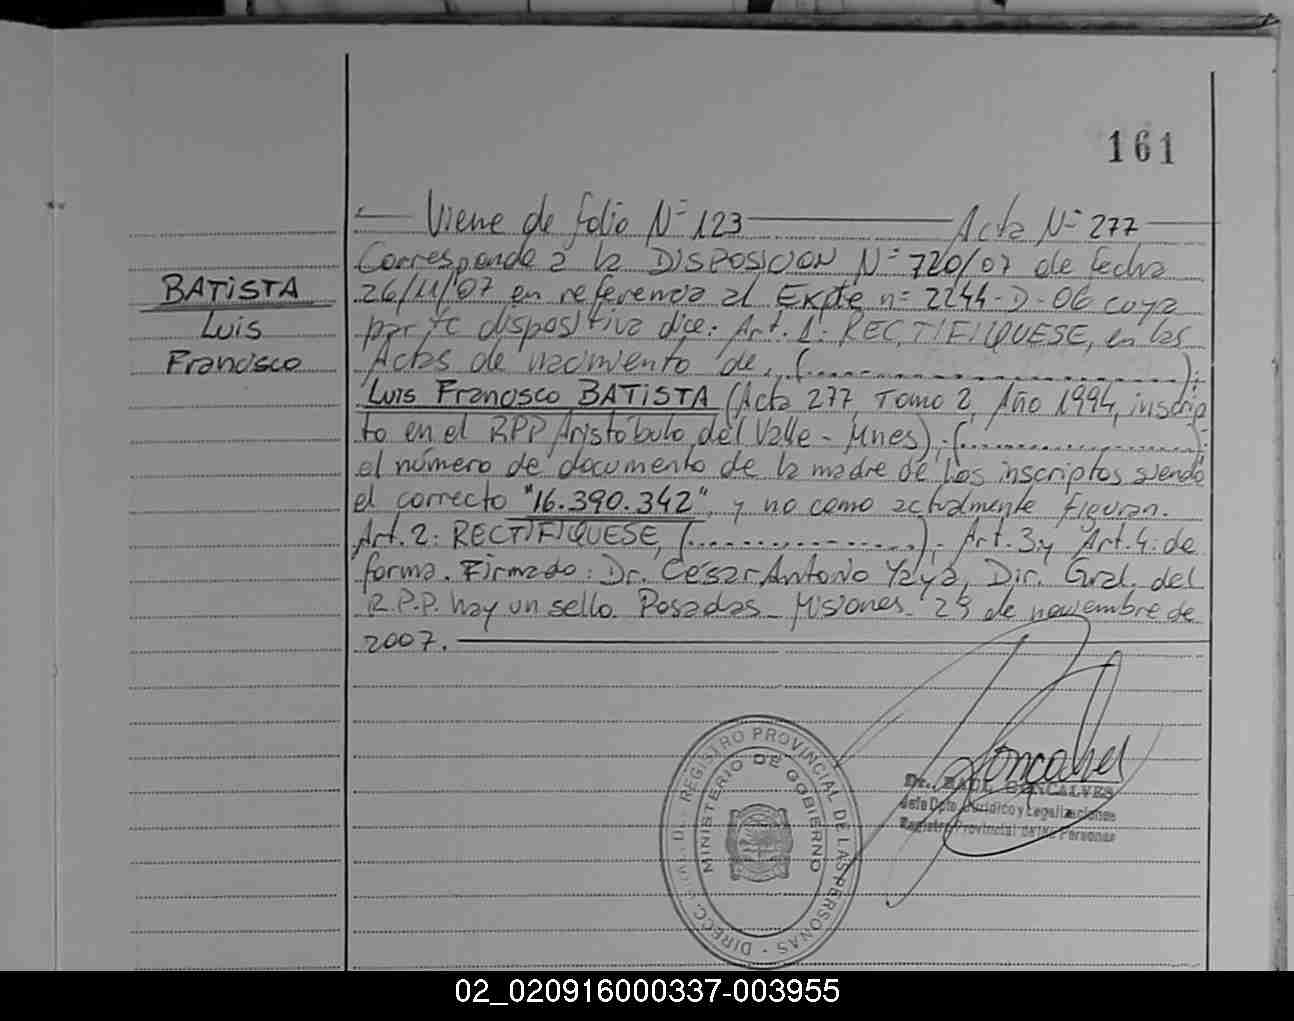 161
Viene de folio Nº 123 Acta Nº 277
Corresponde a la DISPOSICION Nº 720/07 de fecha
BATISTA
Luis
Francisco
26/11/07 en referencia al Expte nº 2244-D-06 cuya
parte dispositiva dice: Art. 1: RECTIFIQUESE, en las
Actas de nacimiento de, (..............................);
Luis Francisco BATISTA (Acta 277, Tomo 2, Año 1994, inscrip
to en el RPP Aristóbulo del Valle - Mnes); (....................);
el número de documento de la madre de los inscriptos siendo
el correcto "16.390.342", y no como actualmente figuran.
Art. 2: RECTIFIQUESE, (....................). Art. 3 y Art. 4: de
forma. Firmado: Dr. César Antonio Yaya, Dir. Gral. del
R.P.P. hay un sello. Posadas - Misiones - 29 de noviembre de
2007.
DIRECC. GRAL. DEL REGISTRO PROVINCIAL DE LAS PERSONAS
MINISTERIO DE GOBIERNO
Dr. RAUL GONCALVES
Jefe Dpto. Jurídico y Legalizaciones
Registro Provincial de las Personas
02_020916000337-003955